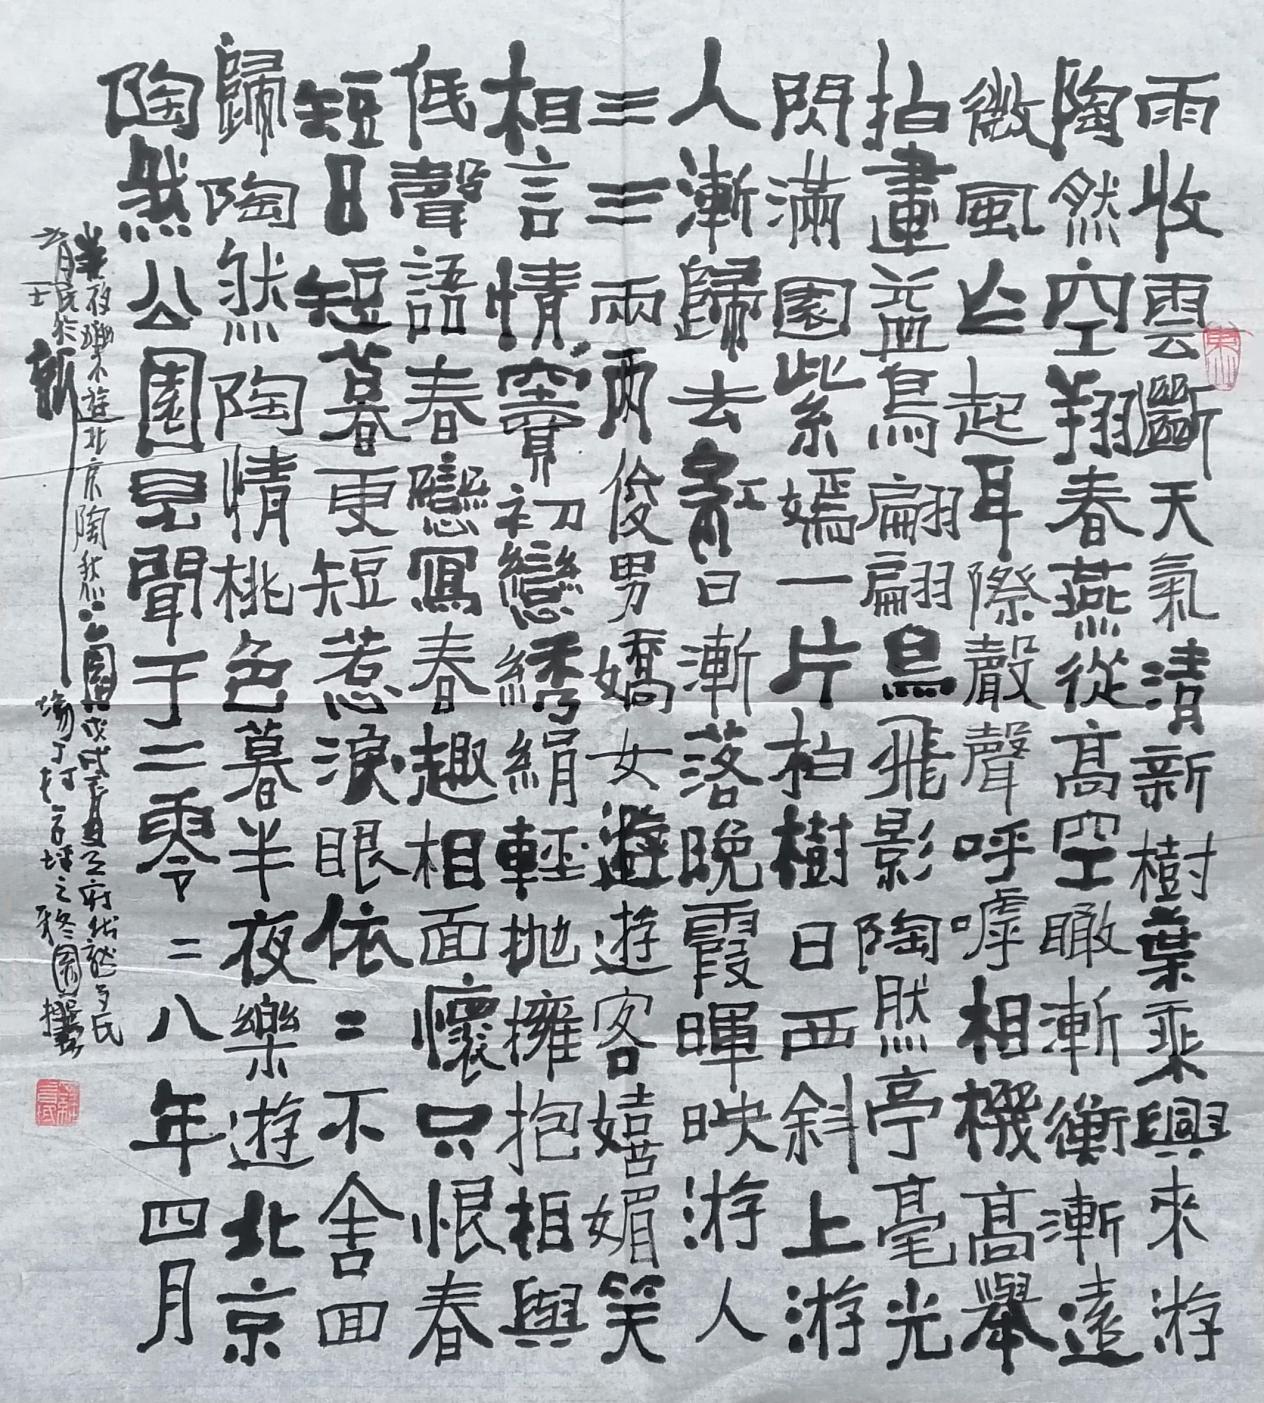 雨收雲斷天氣清新樹葉乘興來游
陶然空翔春燕從高空瞰漸衝漸遠
微風亼起耳際聲聲呼嘑相機高舉
拍畫益鳥翩翩鳥飛影陶然亭毫光
閃滿園紫嫣一片柏樹日西斜上游
人漸歸去紅日漸落晚霞暉映游人
三三兩兩俊男嬌女遊遊客嬉媚笑
相言情竇初戀綉絹輕拋擁抱相與
低聲語春戀寫春趣相面懷只恨春
短日短暮更短惹淚眼依二不舍回
歸陶然陶情桃色暮半夜樂遊北京
陶然公園見聞于二零二八年四月
半夜樂遊北京陶然公園戊戌